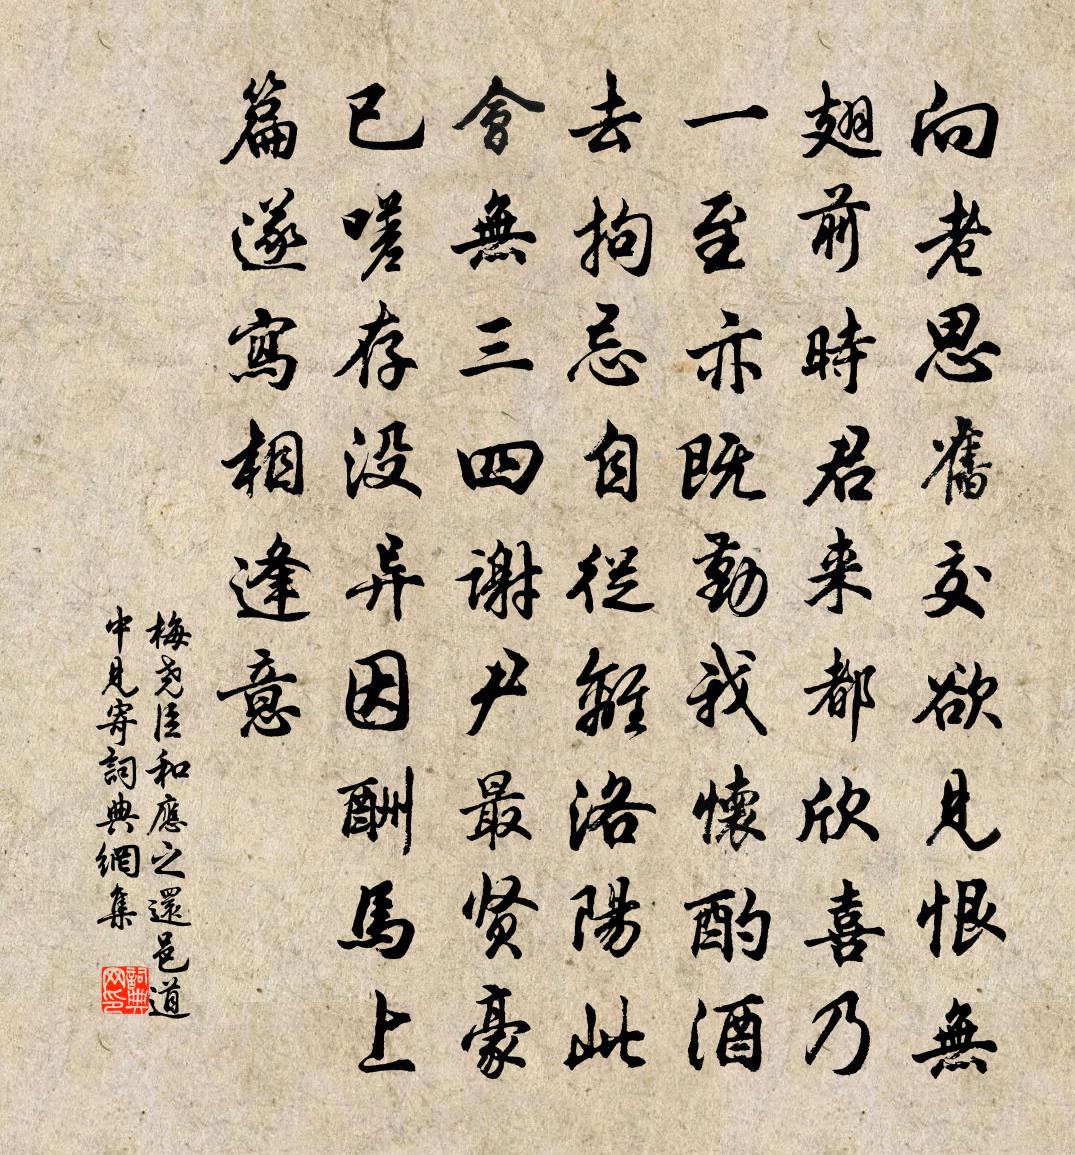 向老思舊交欲見恨無
翅前時君来都欣喜乃
一至亦既勤我懷酌酒
去拘忌自從離洛陽此
會無三四谢尹最贤豪
已嗟存没异因酬馬上
篇遂寫相逢意
梅尧臣和應之還邑道
中見寄詞典網集